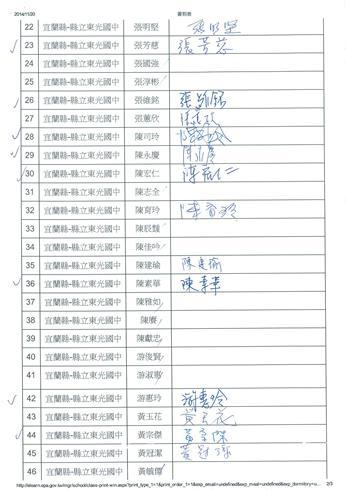 2014/11/20 簽到表
22 宜蘭縣-縣立東光國中 張明堅 張明堅
23 宜蘭縣-縣立東光國中 張芳慈 張芳慈
24 宜蘭縣-縣立東光國中 張國強
25 宜蘭縣-縣立東光國中 張淳彬
26 宜蘭縣-縣立東光國中 張維銘 張維銘
27 宜蘭縣-縣立東光國中 張蕙欣
28 宜蘭縣-縣立東光國中 陳司玲
29 宜蘭縣-縣立東光國中 陳永慶 陳永慶
30 宜蘭縣-縣立東光國中 陳宏仁 陳宏仁
31 宜蘭縣-縣立東光國中 陳志全
32 宜蘭縣-縣立東光國中 陳育玲 陳育玲
33 宜蘭縣-縣立東光國中 陳辰
34 宜蘭縣-縣立東光國中 陳佳吟
35 宜蘭縣-縣立東光國中 陳建瑜 陳建瑜
36 宜蘭縣-縣立東光國中 陳素華 陳素華
37 宜蘭縣-縣立東光國中 陳雅如
38 宜蘭縣-縣立東光國中 陳賡
39 宜蘭縣-縣立東光國中 陳獻忠
40 宜蘭縣-縣立東光國中 游俊賢
41 宜蘭縣-縣立東光國中 游淑惠
42 宜蘭縣-縣立東光國中 游惠玲 游惠玲
43 宜蘭縣-縣立東光國中 黃玉花 黃玉花
44 宜蘭縣-縣立東光國中 黃宗傑 黃宗傑
45 宜蘭縣-縣立東光國中 黃冠潔
46 宜蘭縣-縣立東光國中 黃毓
2/3